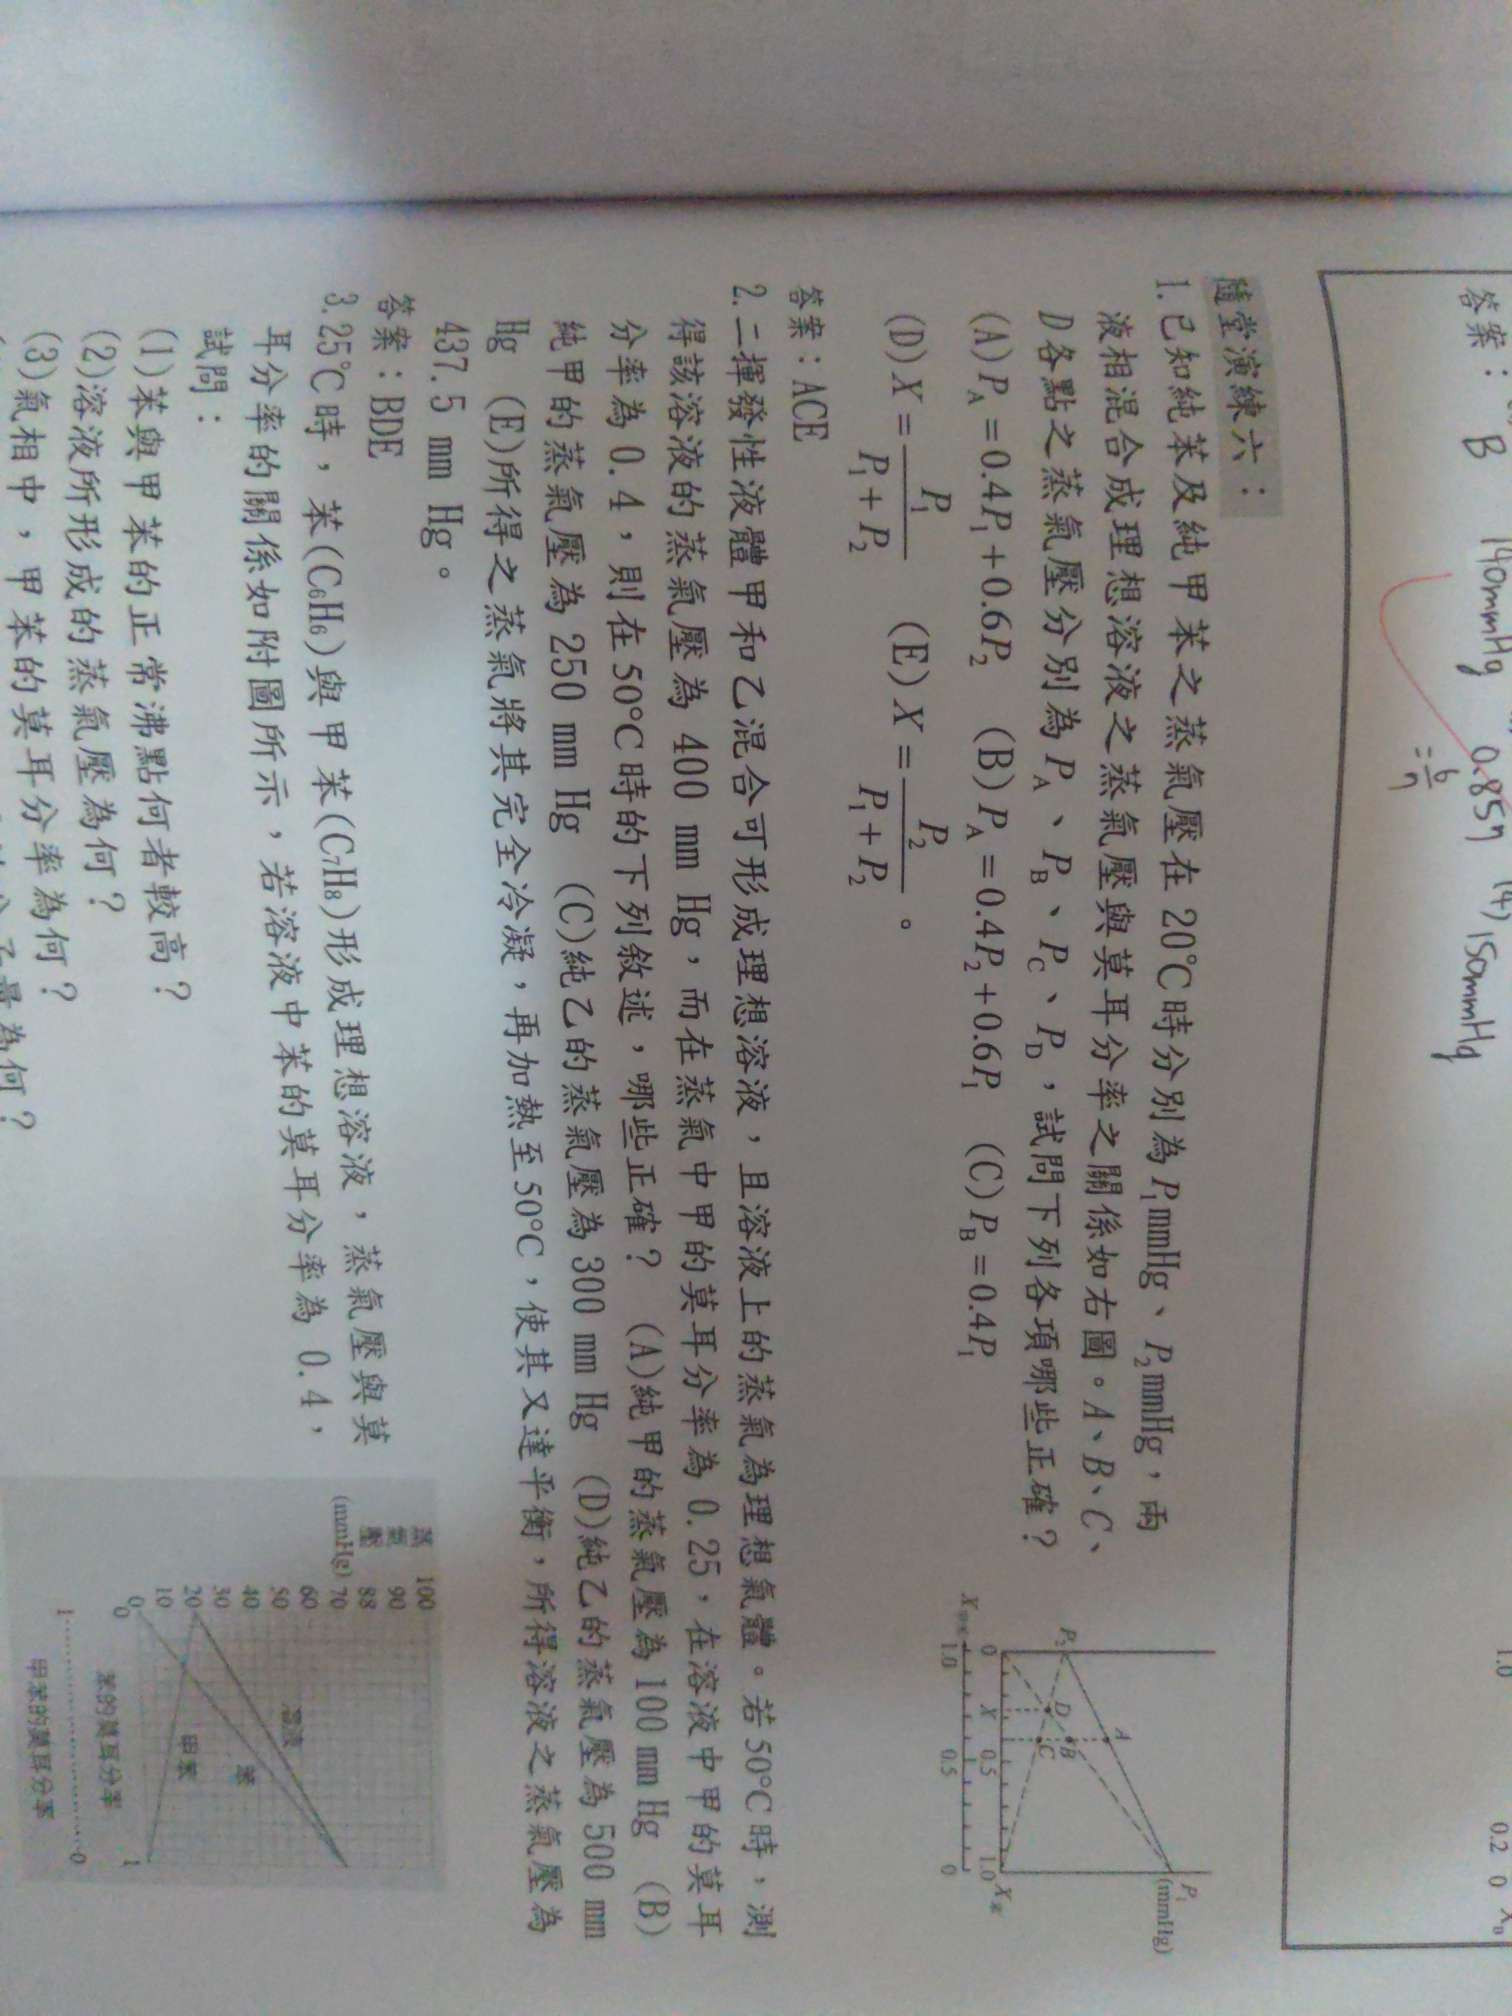 答案： B 140mmHg 0.857 (4) 150mmHg
= 6/7
1.0
0.2 0
隨堂演練六：
1.已知純苯及純甲苯之蒸氣壓在 20℃時分別為 P₁mmHg、P₂mmHg，兩
液相混合成理想溶液之蒸氣壓與莫耳分率之關係如右圖。A、B、C、
D 各點之蒸氣壓分別為 P_A、P_B、P_C、P_D，試問下列各項哪些正確？
(A) P_A =0.4P₁+0.6P₂ (B) P_A =0.4P₂+0.6P₁ (C) P_B =0.4P₁
(D) X = P₁/(P₁+P₂) (E) X = P₂/(P₁+P₂) 。
P₁
(mmHg)
P₂
A
B
C
D
0 X 0.5 1.0 X苯
X甲苯 1.0 0.5 0
答案：ACE
2.二揮發性液體甲和乙混合可形成理想溶液，且溶液上的蒸氣為理想氣體。若50℃時，測
得該溶液的蒸氣壓為 400 mm Hg，而在蒸氣中甲的莫耳分率為 0.25，在溶液中甲的莫耳
分率為 0.4，則在50℃時的下列敘述，哪些正確？ (A)純甲的蒸氣壓為 100 mm Hg (B)
純甲的蒸氣壓為 250 mm Hg (C)純乙的蒸氣壓為 300 mm Hg (D)純乙的蒸氣壓為 500 mm
Hg (E)所得之蒸氣將其完全冷凝，再加熱至50℃，使其又達平衡，所得溶液之蒸氣壓為
437.5 mm Hg。
答案：BDE
3.25℃時，苯(C₆H₆)與甲苯(C₇H₈)形成理想溶液，蒸氣壓與莫
耳分率的關係如附圖所示，若溶液中苯的莫耳分率為 0.4，
試問：
(1)苯與甲苯的正常沸點何者較高？
(2)溶液所形成的蒸氣壓為何？
(3)氣相中，甲苯的莫耳分率為何？
量為何？
蒸氣壓
(mmHg)
100
90
88
70
60
50
40
30
20
10
0
溶液
苯
甲苯
0 1
苯的莫耳分率
1 0
甲苯的莫耳分率